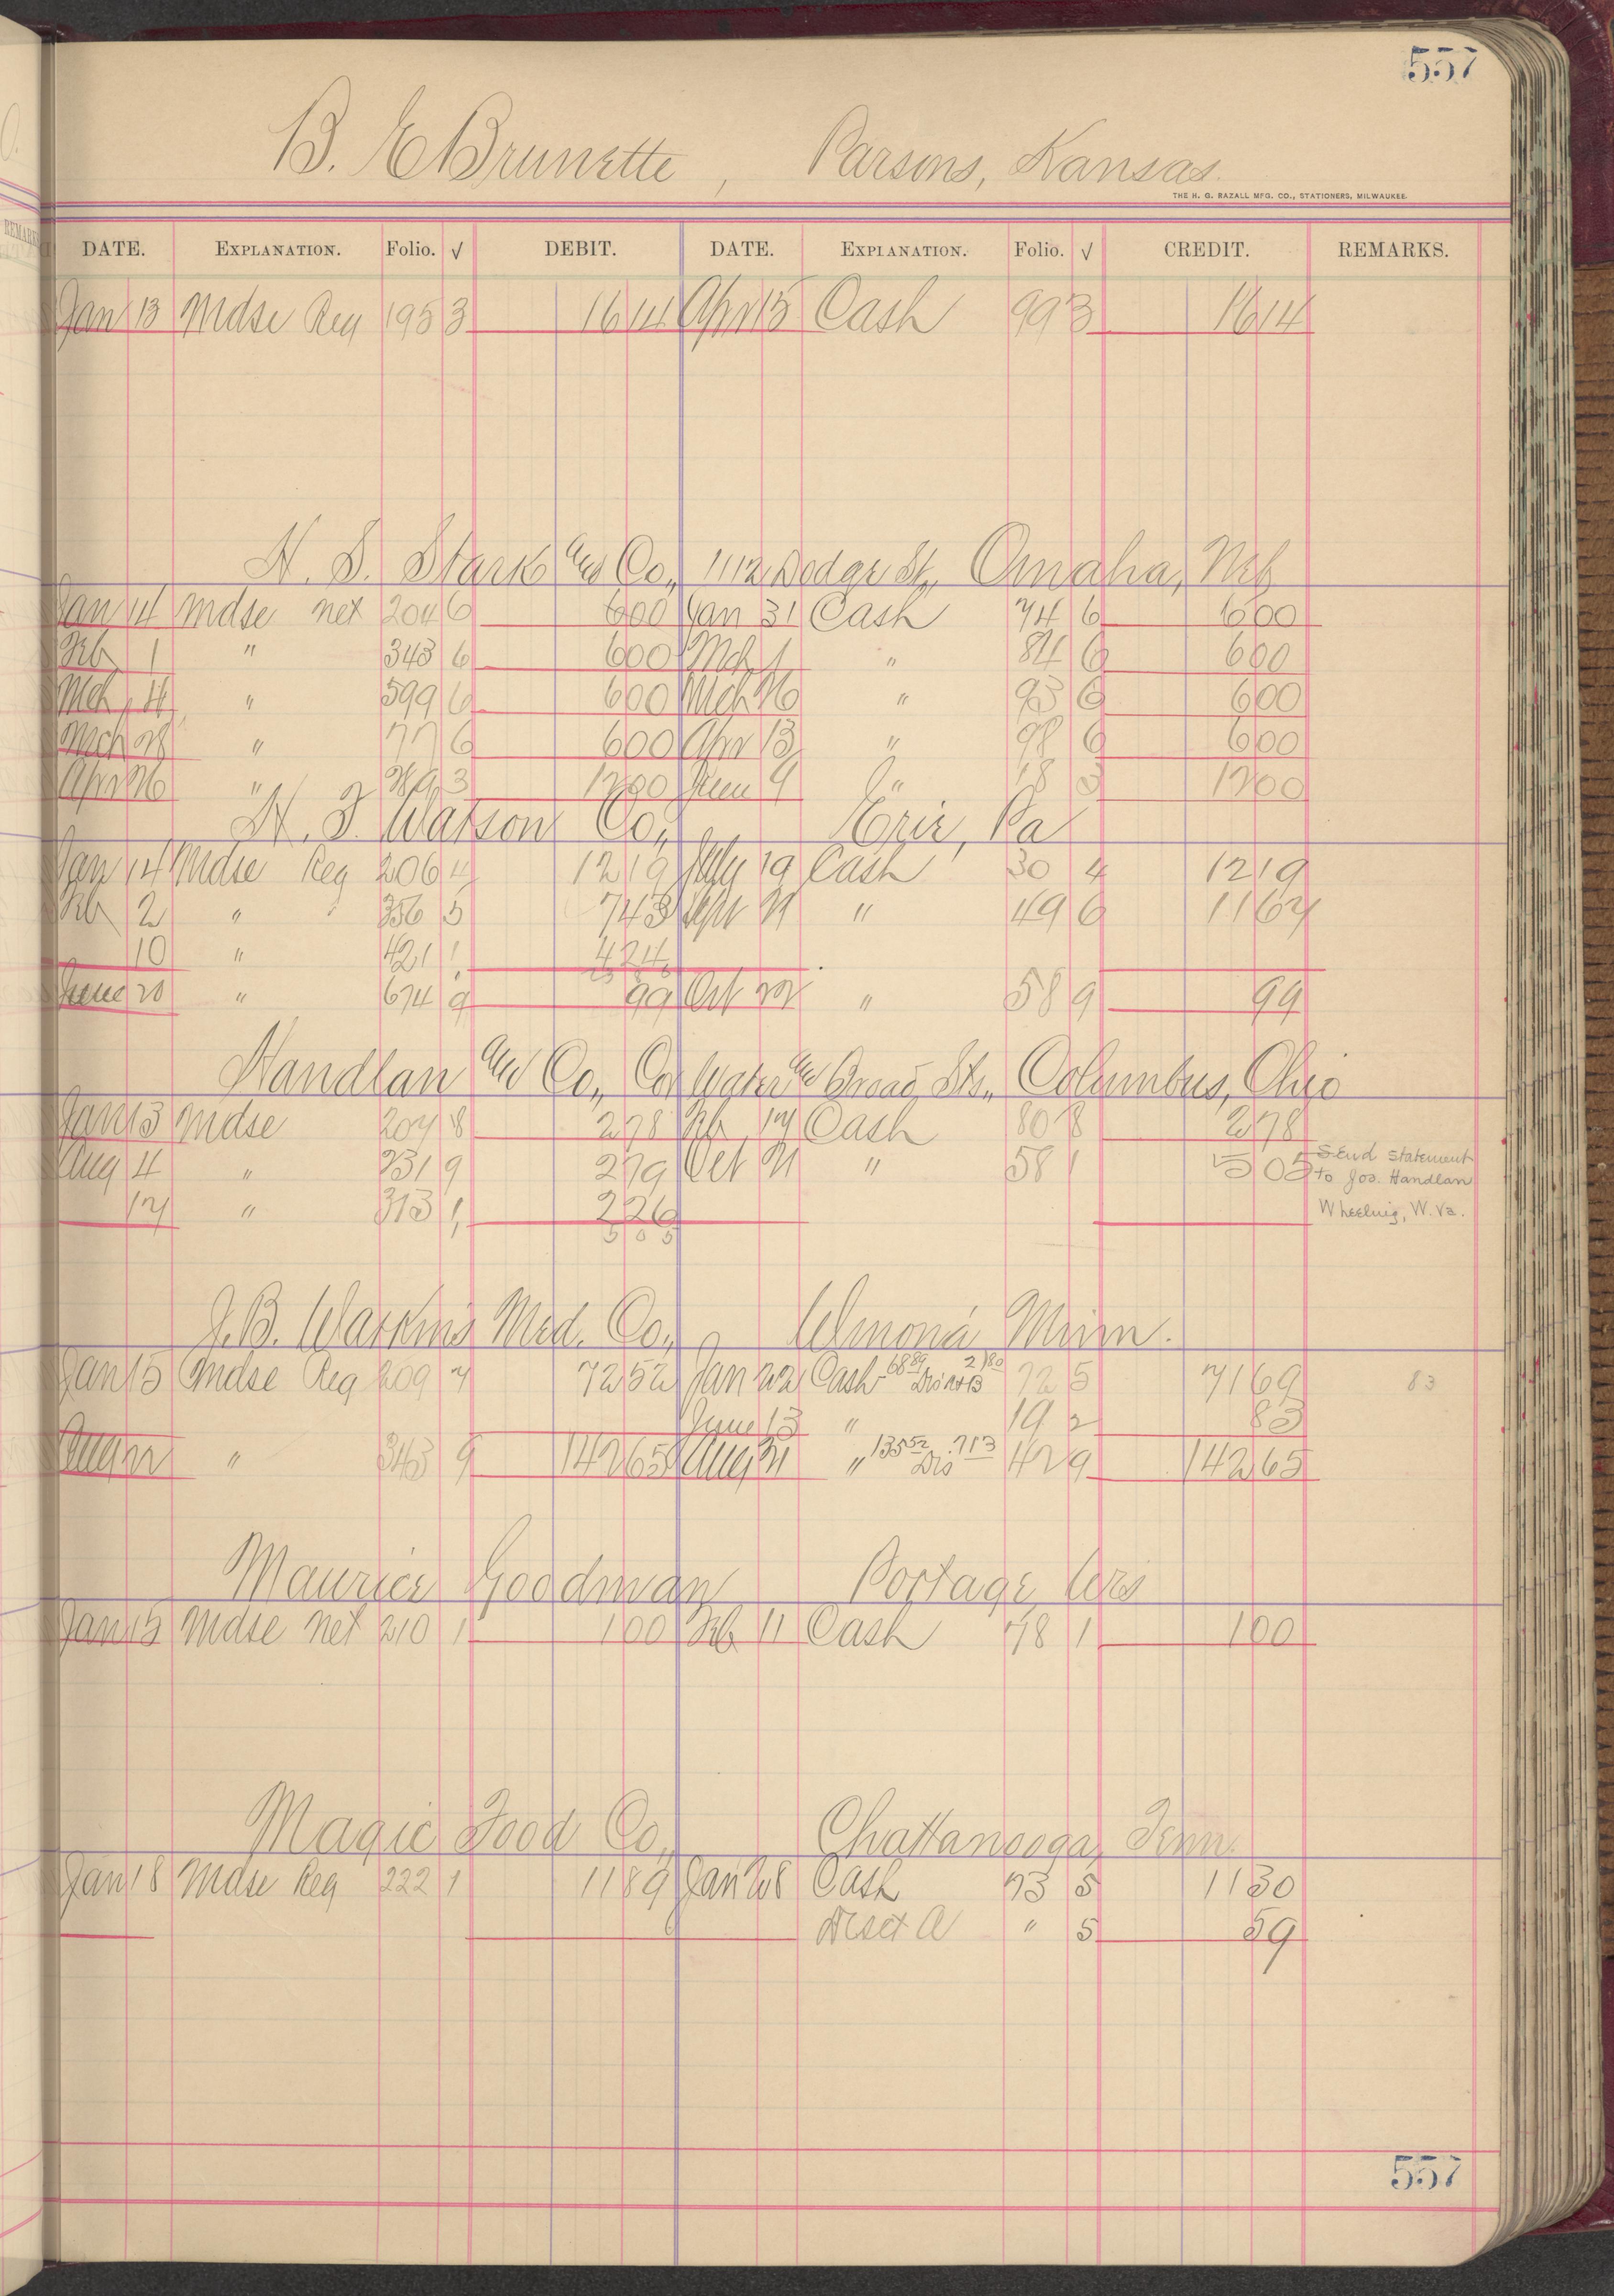 557
B. E Brunette, Parsons, Kansas.
THE H. G. RAZALL MFG. CO., STATIONERS, MILWAUKEE.
DATE. EXPLANATION. Folio. √ DEBIT. DATE. EXPLANATION. Folio. √ CREDIT. REMARKS.
Jan 13 Mdse Reg 195 3 16 14 Apr 15 Cash 99 3 16 14
Stark and Co., 1112 Dodge St., Omaha, Neb
Jan 14 Mdse net 204 6 6 00 Jan 31 Cash 74 6 6 00
Feb 1 " 343 6 6 00 Mch 1 " 84 6 6 00
Mch 4 " 599 6 6 00 Mch 26 " 93 6 6 00
Mch 28 " 77 6 6 00 Apr 13 " 98 6 6 00
Apr 26 " 3 12 00 June 9 " 18 3 12 00
Watson Co., Erie, Pa
Jan 14 Mdse Reg 206 4 12 19 July 19 Cash 30 4 12 19
Feb 2 " 356 5 7 43 Sept 21 " 49 6 11 67
10 " 421 1 4 24
June 20 " 674 9 99 Oct 22 " 58 9 99
Handlan and Co., Cor Water and Broad Sts., Columbus, Ohio
Jan 13 Mdse 207 8 2 78 Feb 17 Cash 80 8 2 78
Aug 4 " 231 9 2 79 Oct 21 " 58 1 5 05 Send statement
to Jos. Handlan
17 " 313 1 2 26 Wheeling, W. Va.
5 05
J. B. Watkins Med. Co., Winona Minn.
Jan 15 Mdse Reg 209 7 72 52 Jan 22 Cash 68 89 Dis 2 80 72 5 71 69 83
June 13 " 19 2 83
Aug 22 " 343 9 142 65 Aug 31 " 135 52 Dis 7 13 42 9 142 65
Maurice Goodman Portage, Wis
Jan 15 Mdse net 210 1 1 00 Feb 11 Cash 78 1 1 00
Magic Food Co., Chattanooga, Tenn.
Jan 18 Mdse Reg 222 1 11 89 Jan 28 Cash 73 5 11 30
Disct A " 5 59
557